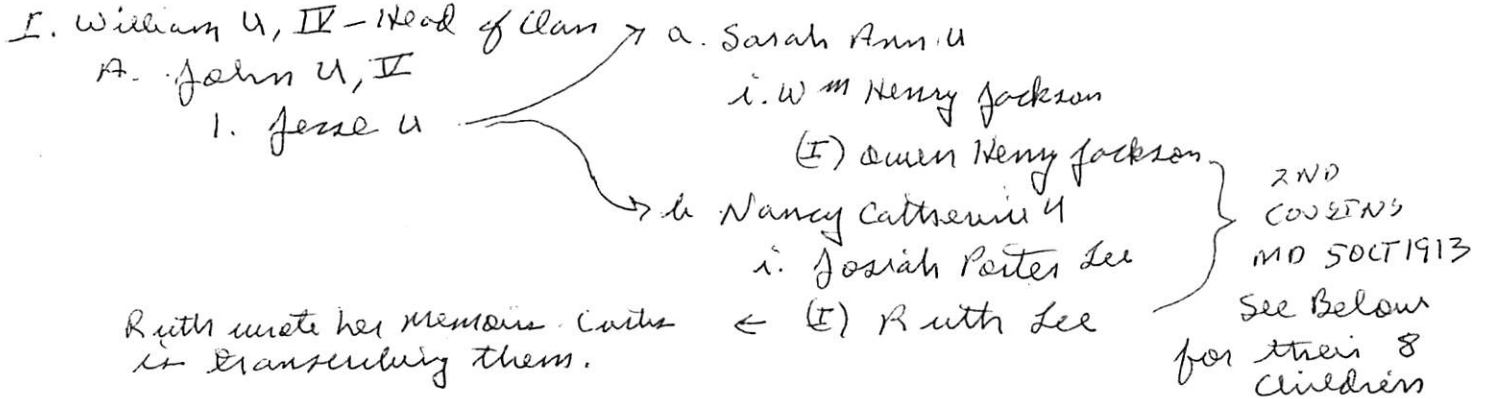 I. William U, IV – Head of Clan
A. John U, V
1. Jesse U
a. Sarah Ann U
i. Wm Henry Jackson
(I) Owen Henry Jackson
b. Nancy Catherine U
i. Josiah Porter Lee
(I) Ruth Lee
2ND
COUSINS
MD 5OCT1913
See Below
for their 8
Children
← Ruth wrote her memoirs. Curtis
is transcribing them.